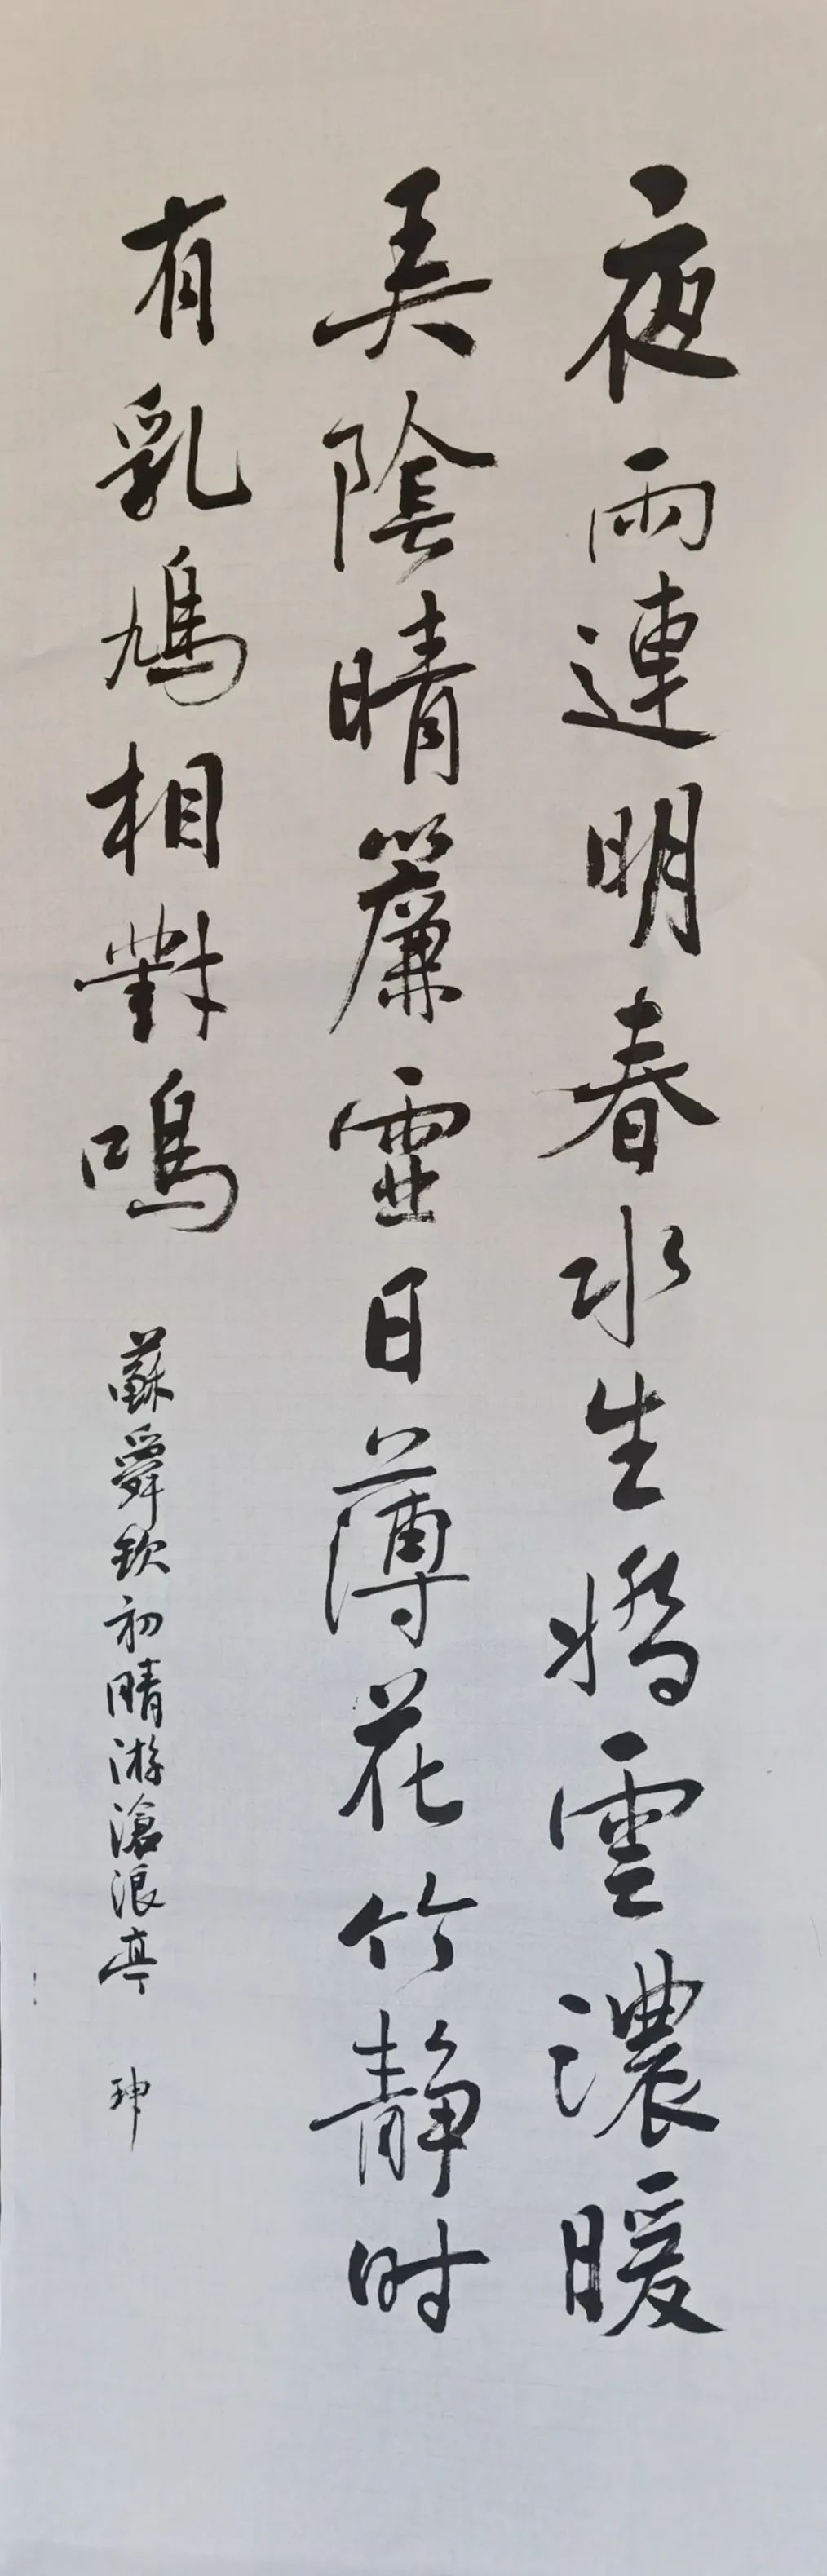 夜雨連明春水生嬌雲濃暖
弄陰晴簾虛日薄花竹静时
有乳鳩相對鳴
蘇舜欽初晴游滄浪亭 珅